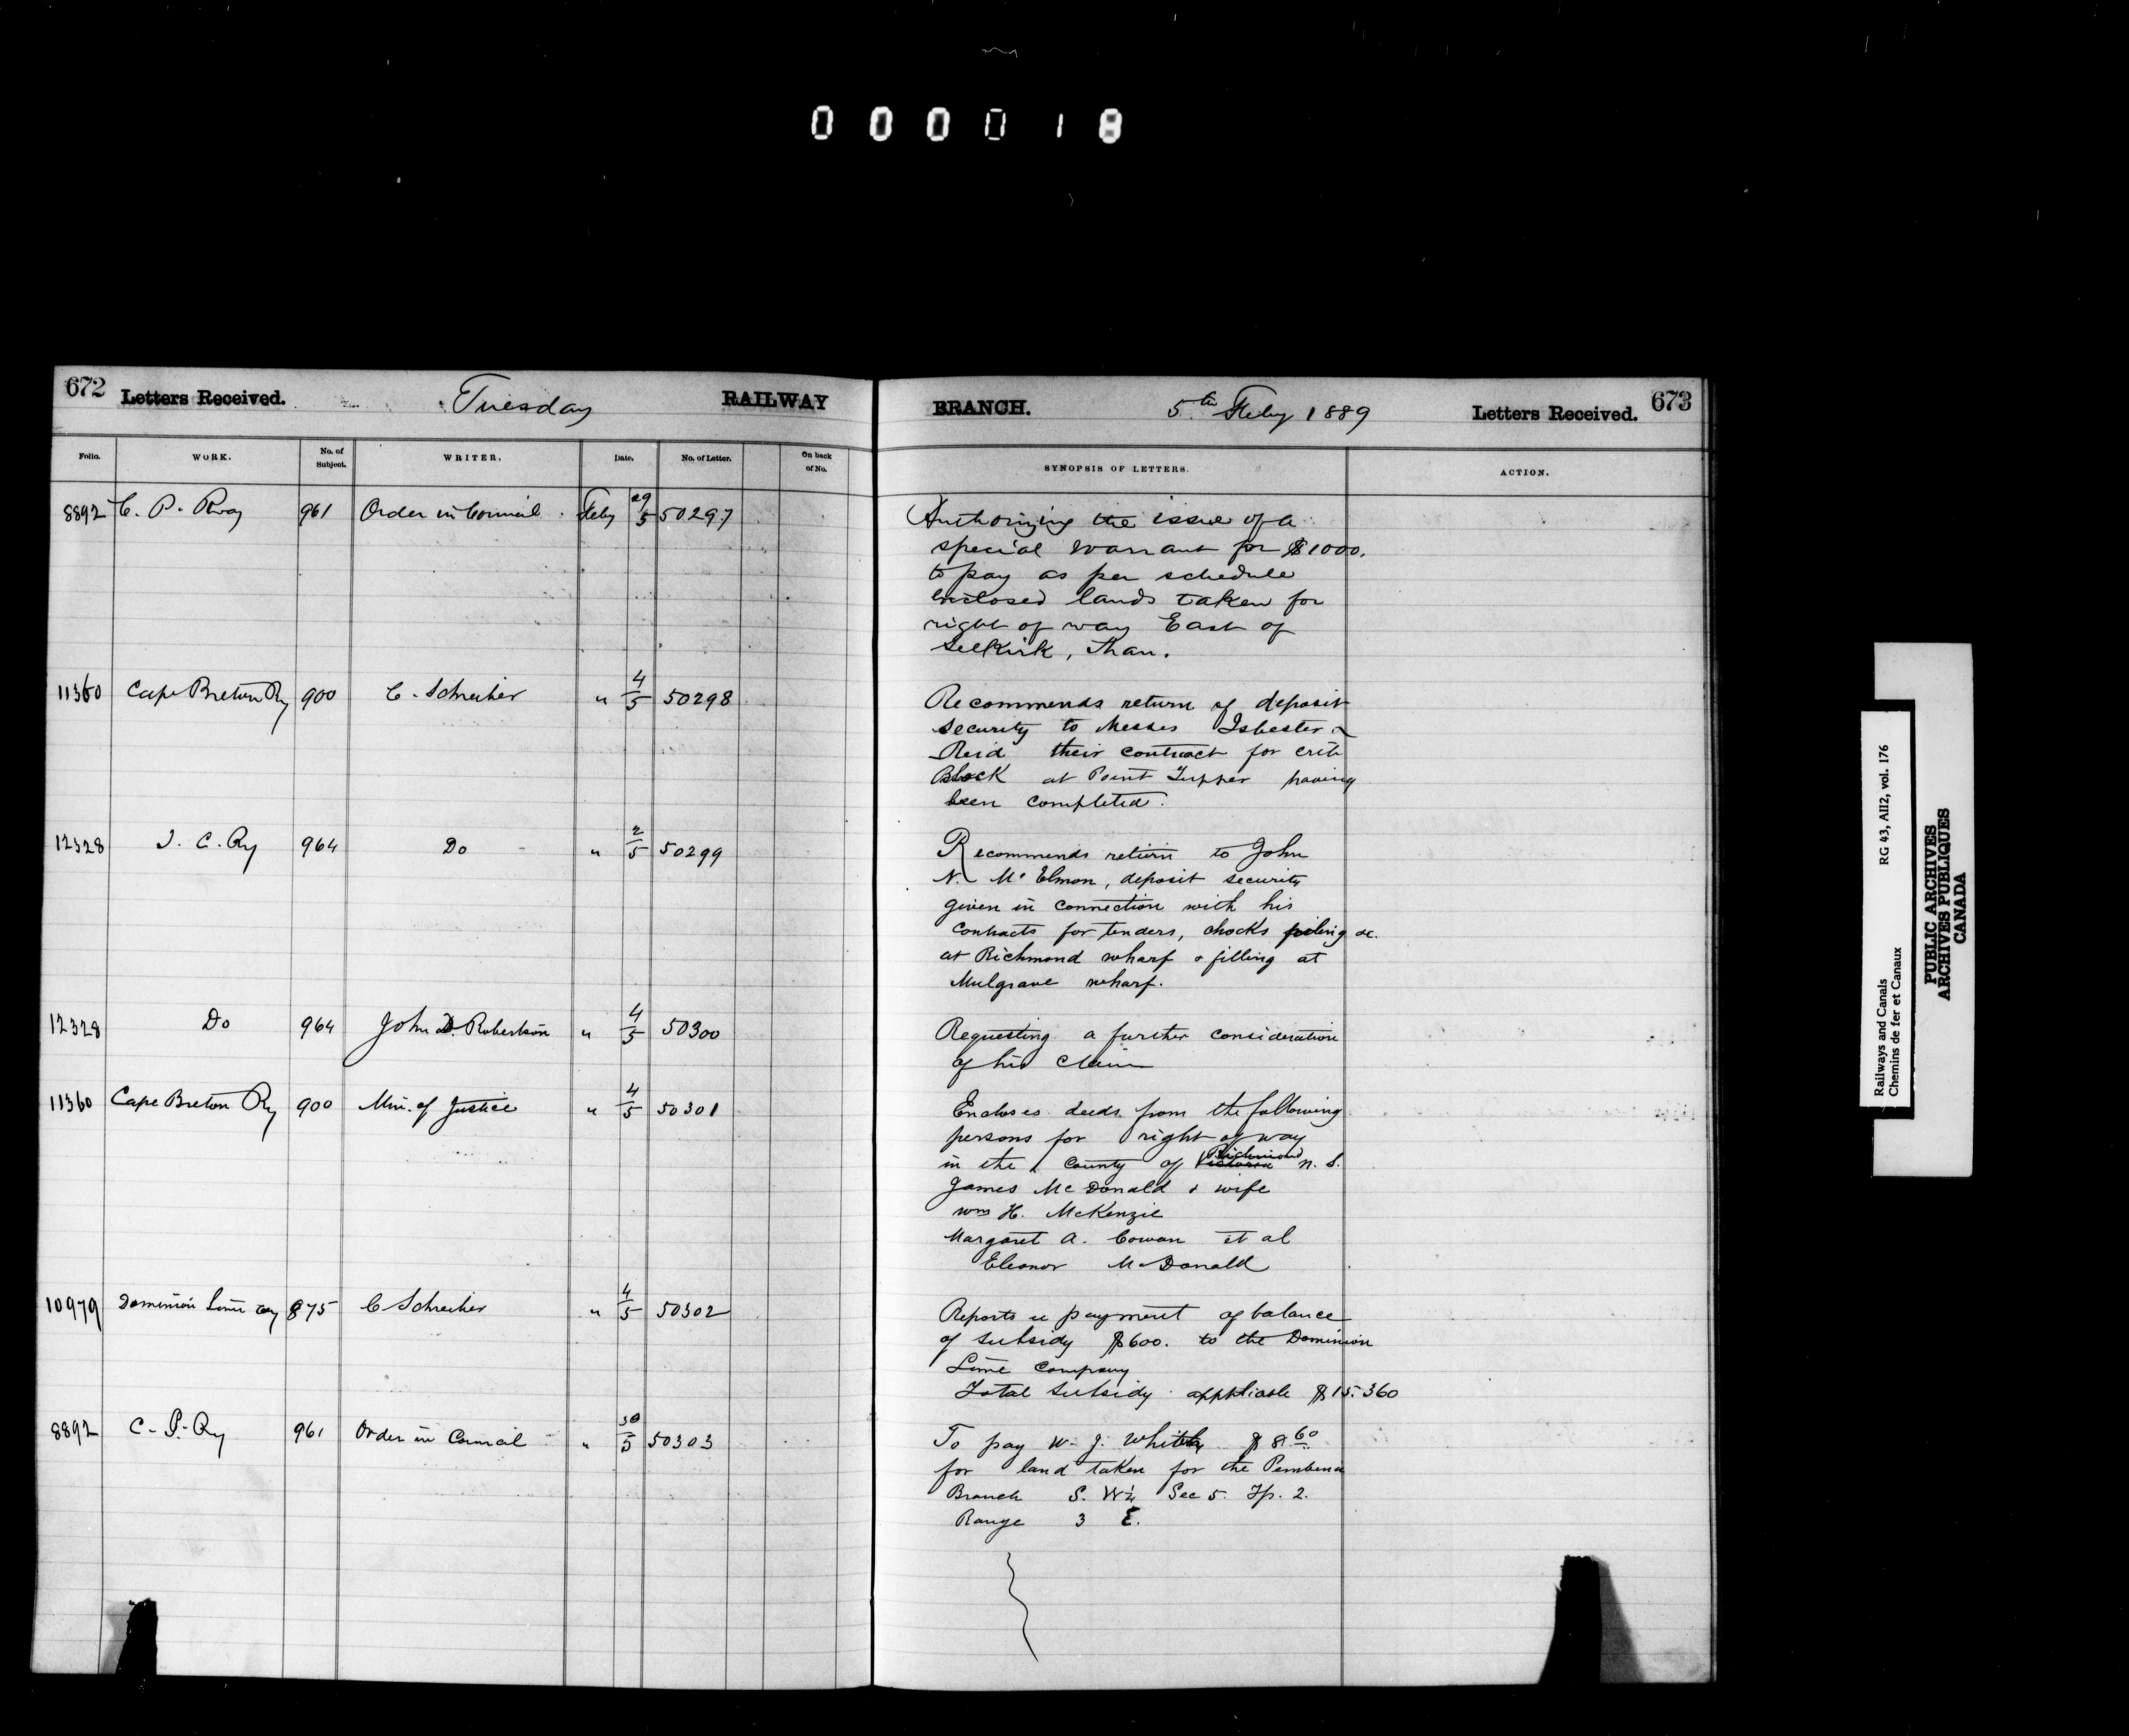 000018
672 Letters Received. Tuesday RAILWAY
Folio. WORK. No. of Subject. WRITER. Date. No. of Letter. On back of No.
8892 C. P. Rway 961 Order in Council Feby 29/5 50297
11360 Cape Breton Ry 900 C. Schreiber " 4/5 50298
12328 I. C. Ry 964 Do " 2/5 50299
12328 Do 964 John D. Robertson " 4/5 50300
11360 Cape Breton Ry 900 Min. of Justice " 4/5 50301
10979 Dominion Lime Coy 875 C Schreiber " 4/5 50302
8892 C. P. Ry 961 Order in Council " 30/5 50303
BRANCH. 5th Feby 1889 Letters Received. 673
SYNOPSIS OF LETTERS. ACTION.
Authorizing the issue of a
special warrant for $1000.
to pay as per schedule
enclosed lands taken for
right of way East of
Selkirk, Man.
Recommends return of deposit
security to Messrs Isbester &
Reid their contract for crib
Block at Point Tupper having
been completed.
Recommends return to John
N. McElmon, deposit security
given in connection with his
contracts for fenders, chocks piling &c.
at Richmond wharf & filling at
Mulgrave wharf.
Requesting a further consideration
of his claim
Encloses deeds from the following
persons for right of way
in the County of Victoria Richmond N. S.
James McDonald & wife
Wm H. McKenzie
Margaret A. Cowan et al
Eleanor McDonald
Reports re payment of balance
of subsidy $600. to the Dominion
Lime Company
Total subsidy applicable $15.360
To pay W. J. $8.60
for land taken for the Pembina
Branch S. W¼ Sec 5. Tp. 2.
Range 3 E.
Railways and Canals RG 43, AII2, vol. 176
Chemins de fer et Canaux
PUBLIC ARCHIVES
ARCHIVES PUBLIQUES
CANADA